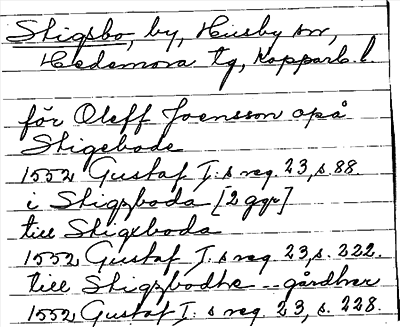 Stigsbo, by, Husby sn,
Hedemora tg, Kopparb. l.
för Oleff Joensson opå
Stigebode
1552 Gustaf I:s reg. 23, s. 88
i Stigzboda [2 ggr]
till Stigxboda
1552 Gustaf I:s reg. 23, s. 222.
till Stigzbodhe -- gårdher
1552 Gustaf I:s reg. 23, s. 228.